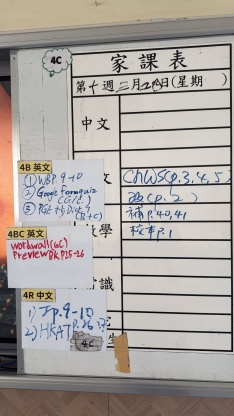 4C
家課表
第十週二月24日(星期 )
中文
4B 英文
① WB P. 9-10
② Google form quiz
文
CNWS(p.3,4,5)
改(p.2)
4BC 英文
wordwall(GC)
Preview BK P25-26
數學
補P.40,41
校本p.1
4R 中文
1) 工p.9-10
識
4C